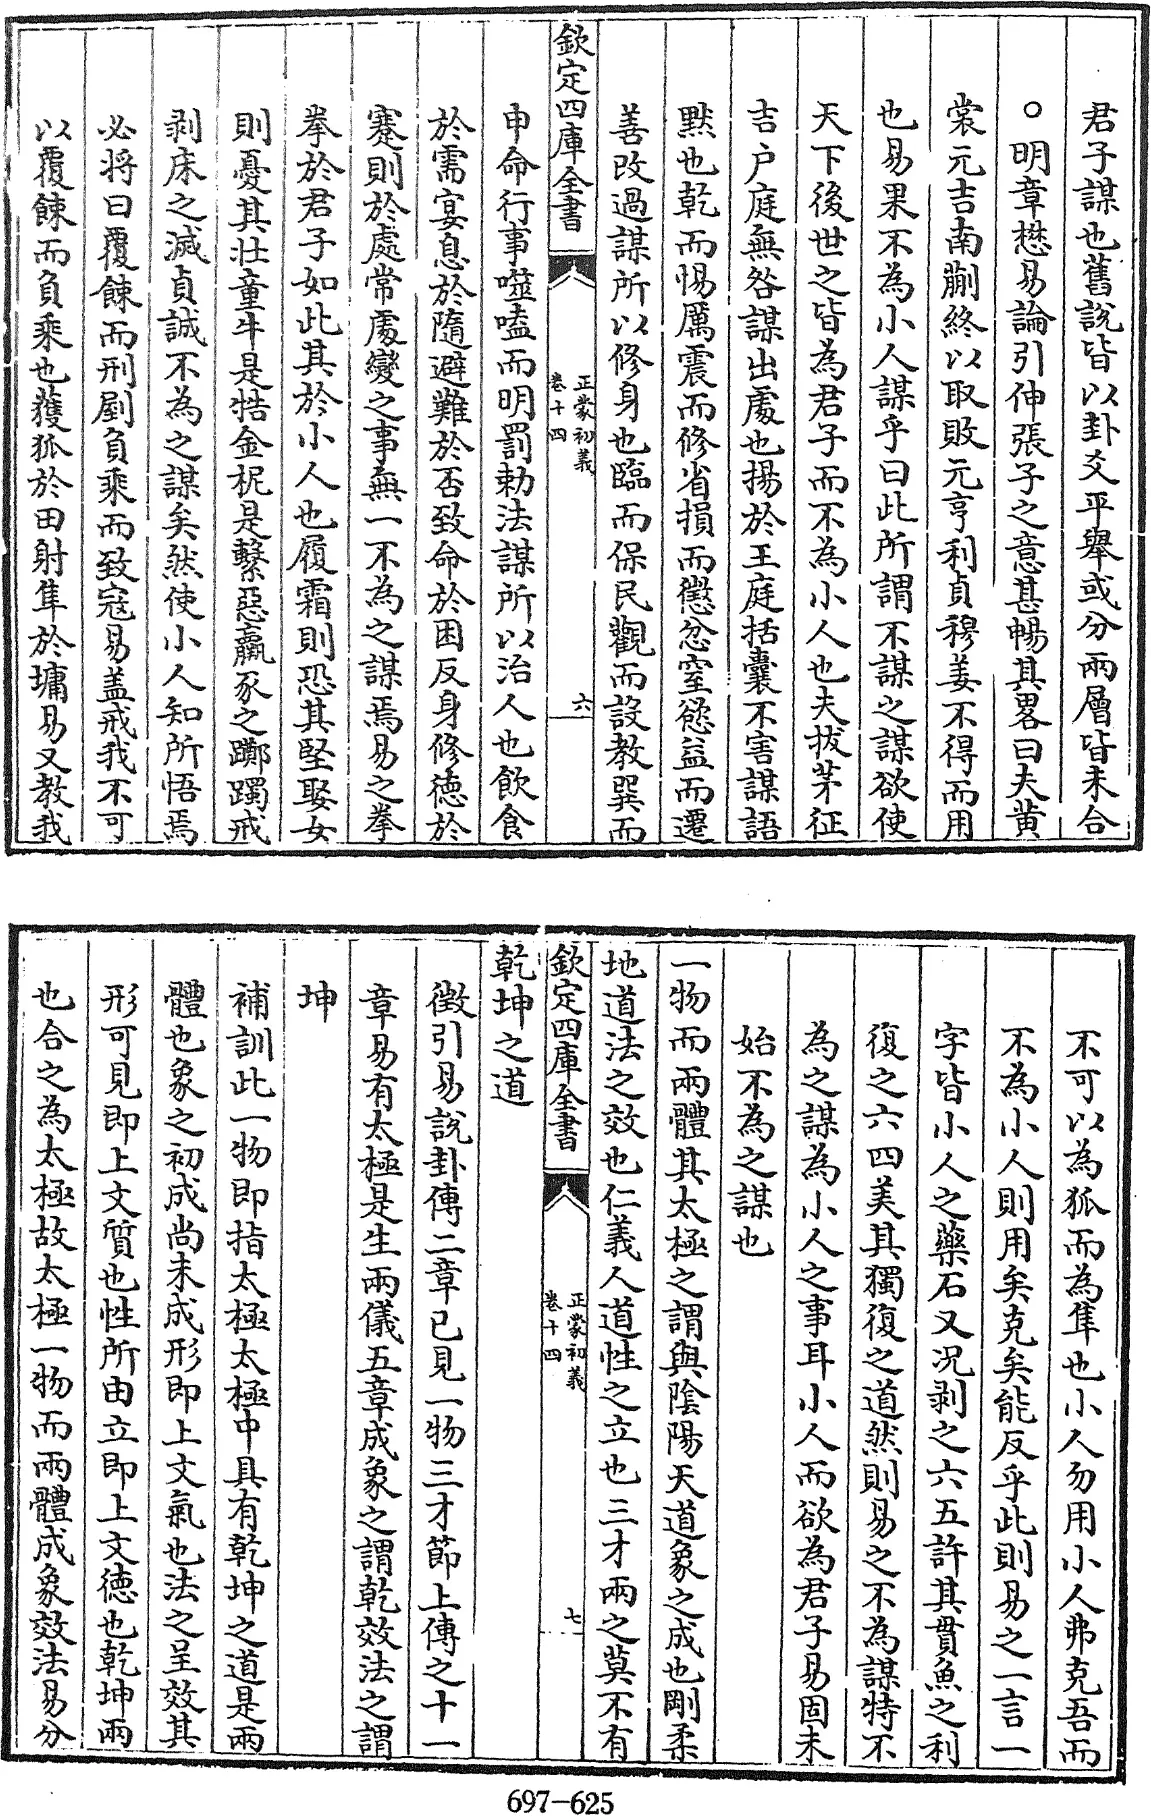 君子謀也舊說皆以卦爻平舉或分兩層皆未合
○明章懋易論引伸張子之意甚暢其畧曰夫黄
裳元吉南蒯終以取敗元亨利貞穆姜不得而用
也易果不為小人謀乎曰此所謂不謀之謀欲使
天下後世之皆為君子而不為小人也夫拔茅征
吉户庭無咎謀出處也揚於王庭括囊不害謀語
黙也乾而惕厲震而修省損而懲忿窒慾益而遷
善改過謀所以修身也臨而保民觀而設教巽而
欽定四庫全書
正蒙初義
卷十四
六
申命行事噬嗑而明罰勅法謀所以治人也飲食
於需宴息於隨避難於否致命於困反身修徳於
蹇則於處常處變之事無一不為之謀焉易之拳
拳於君子如此其於小人也履霜則恐其堅娶女
則憂其壯童牛是牿金柅是繫惡羸豕之躑躅戒
剥床之滅貞誠不為之謀矣然使小人知所悟焉
必将曰覆餗而刑剭負乘而致寇易盖戒我不可
以覆餗而負乘也獲狐於田射隼於墉易又教我
不可以為狐而為隼也小人勿用小人弗克吾而
不為小人則用矣克矣能反乎此則易之一言一
字皆小人之藥石又况剥之六五許其貫魚之利
復之六四美其獨復之道然則易之不為謀特不
為之謀為小人之事耳小人而欲為君子易固未
始不為之謀也
一物而兩體其太極之謂與陰陽天道象之成也剛柔
地道法之效也仁義人道性之立也三才兩之莫不有
欽定四庫全書
正蒙初義
卷十四
七
乾坤之道
徴引易說卦傳二章已見一物三才節上傳之十一
章易有太極是生兩儀五章成象之謂乾效法之謂
坤
補訓此一物即指太極太極中具有乾坤之道是兩
體也象之初成尚未成形即上文氣也法之呈效其
形可見即上文質也性所由立即上文徳也乾坤兩
也合之為太極故太極一物而兩體成象效法易分
697-625